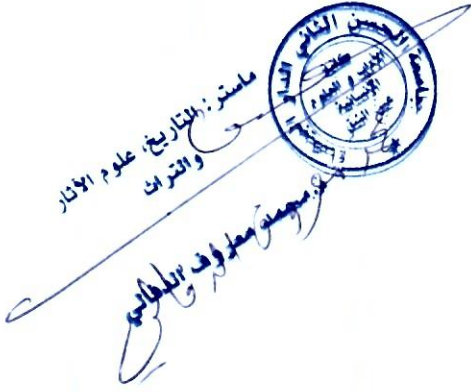 جامعة الحسن الثاني الدار البيضاء
كلية
الآداب والعلوم
الإنسانية
عين الشق
ماستر: التاريخ، علوم الآثار
والتراث
د. محمد معروف الدفالي